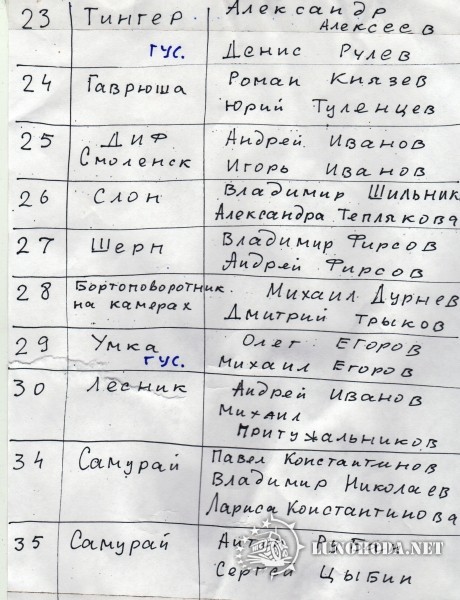 23 Тингер Александр
Алексеев
гус. Денис Рулев
24 Гаврюша Роман Князев
Юрий Туленцев
25 ДИФ Андрей Иванов
Смоленск Игорь Иванов
26 Слон Владимир Шильник
Александра Теплякова
27 Шерп Владимир Фирсов
Андрей Фирсов
28 Бортоповоротник Михаил Дурнев
на камерах Дмитрий Трыков
29 Умка Олег Егоров
гус. Михаил Егоров
30 Лесник Андрей Иванов
Михаил
Притужальников
34 Самурай Павел Константинов
Владимир Николаев
Лариса Константинова
35 Самурай
LUNOHODA.NET
Сергей Цыбин